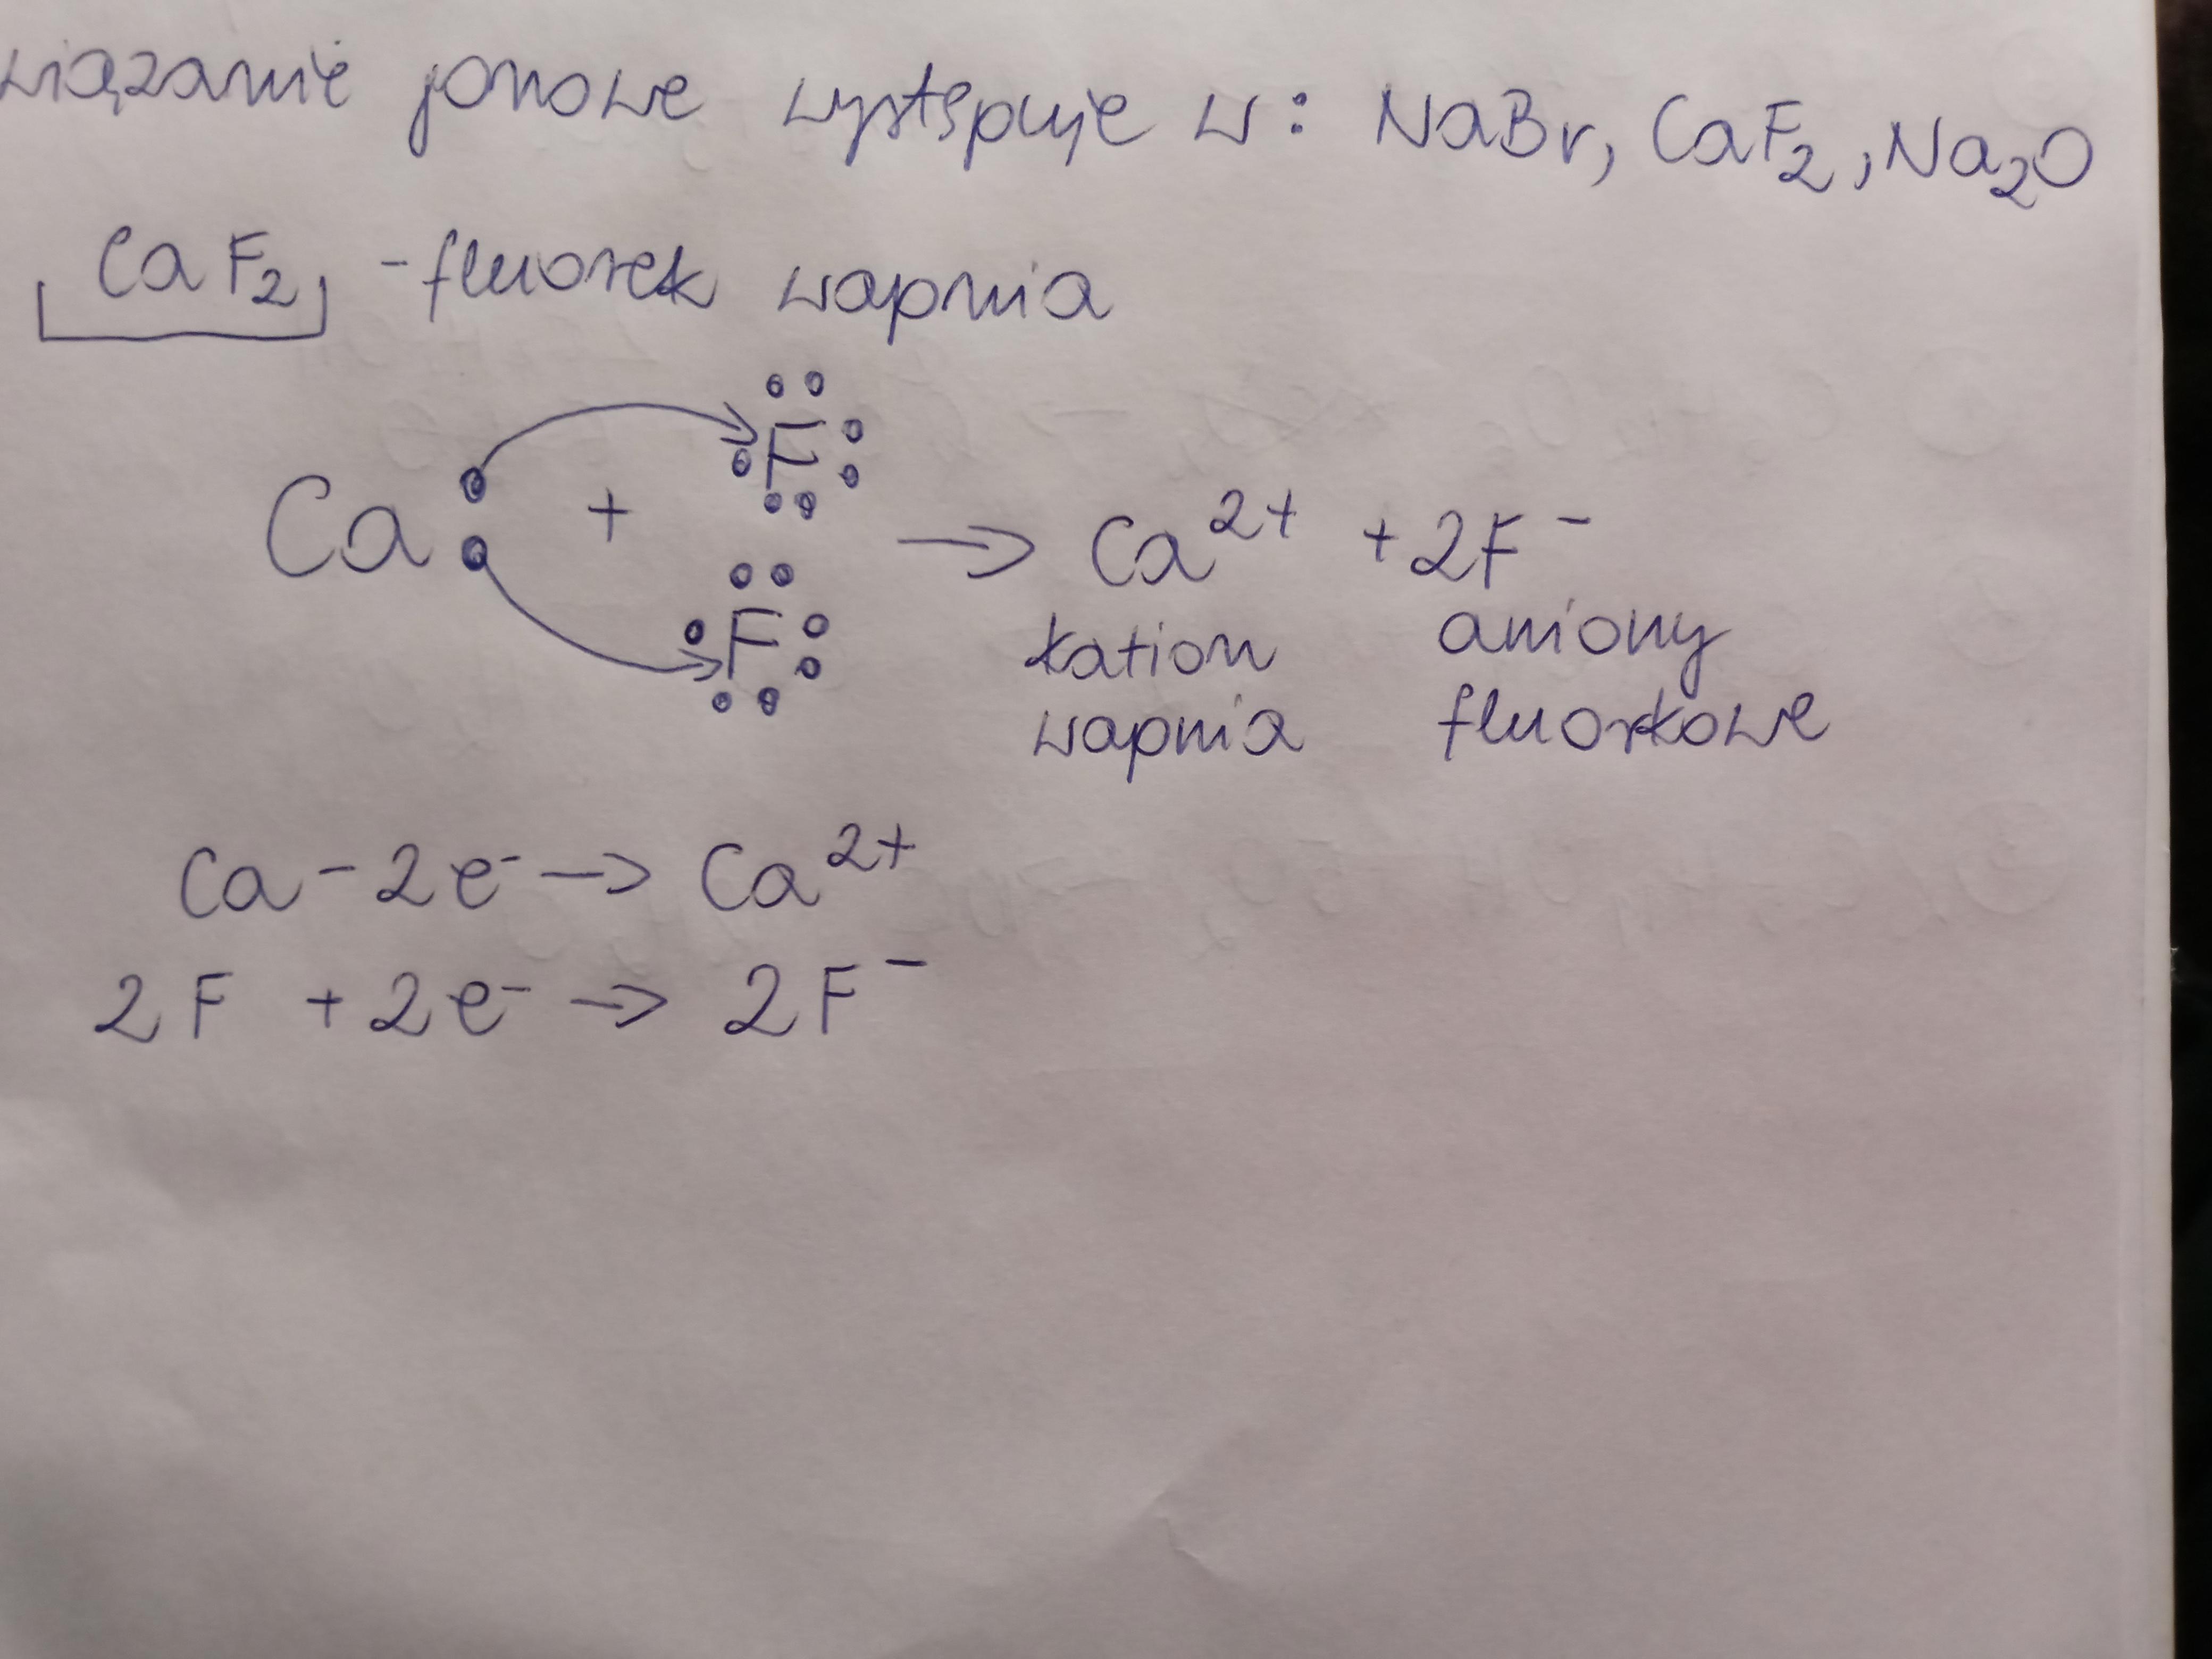 wiązanie jonowe występuje w: NaBr, CaF₂, Na₂O
CaF₂ - fluorek wapnia
Ca + F F → Ca²⁺ + 2F⁻
kation aniony
wapnia fluorkowe
Ca - 2e⁻ → Ca²⁺
2F + 2e⁻ → 2F⁻